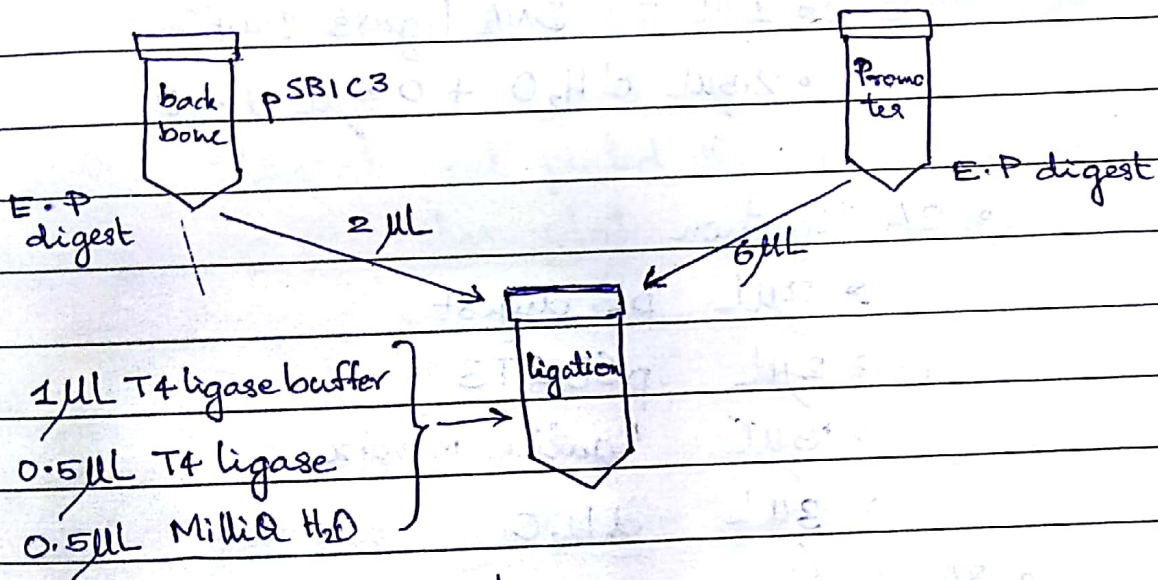 back
bone
pSB1C3
Promo
ter
E.P
digest
E.P digest
2 µL
6 µL
ligation
1 µL T4 ligase buffer
0.5 µL T4 ligase
0.5 µL MilliQ H₂O